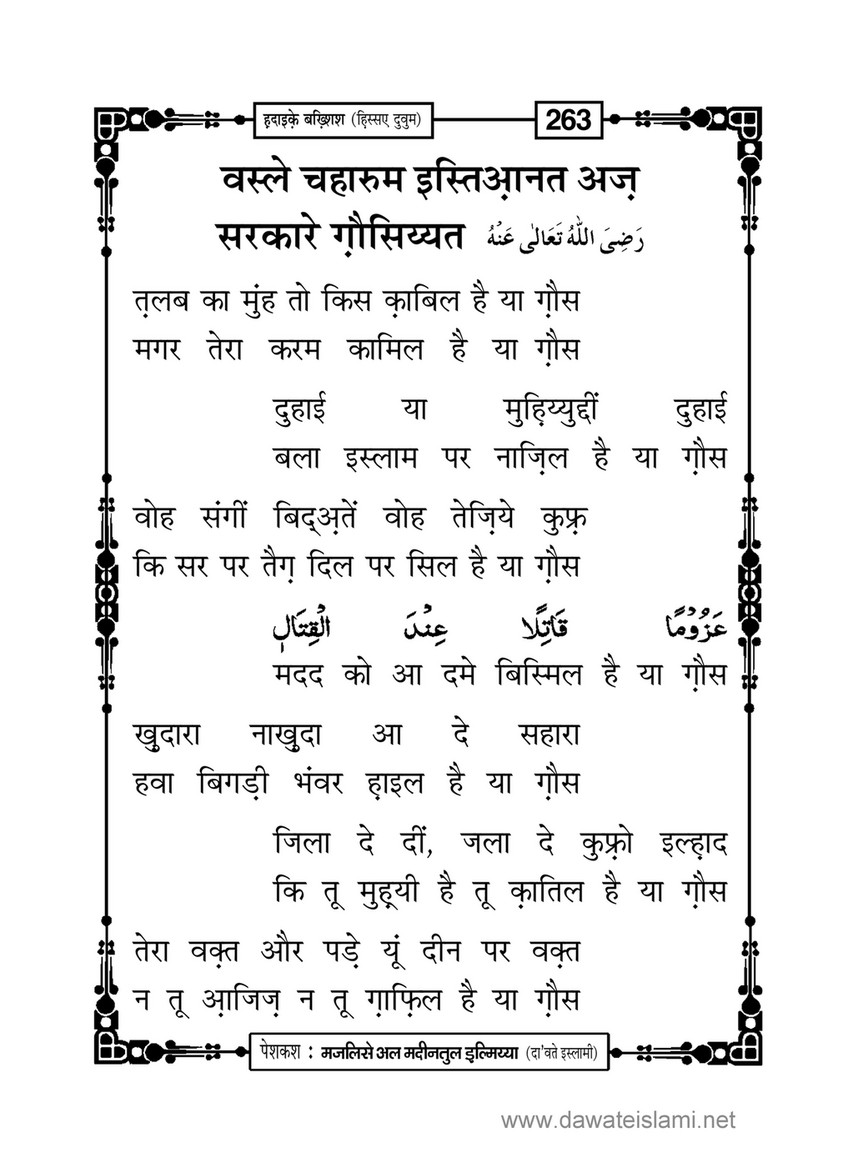 ह़दाइक़े बख़्शिश (हि़स्सए दुवुम)
263
वस्ले चहारुम इस्तिआ़नत अज़
सरकारे ग़ौसिय्यत رَضِیَ اللّٰہُ تَعَالٰی عَنْہُ
त़लब का मुंह तो किस क़ाबिल है या ग़ौस
मगर तेरा करम कामिल है या ग़ौस
दुहाई या मुहि़य्युद्दीं दुहाई
बला इस्लाम पर नाज़िल है या ग़ौस
वोह संगीं बिद्अ़तें वोह तेज़िये कुफ़्र
कि सर पर तैग़ दिल पर सिल है या ग़ौस
عَزُوْمًا قَاتِلًا عِنْدَ الْقِتَالِ
मदद को आ दमे बिस्मिल है या ग़ौस
ख़ुदारा नाख़ुदा आ दे सहारा
हवा बिगड़ी भंवर ह़ाइल है या ग़ौस
जिला दे दीं, जला दे कुफ़्रो इल्ह़ाद
कि तू मुह़्यी है तू क़ातिल है या ग़ौस
तेरा वक़्त और पड़े यूं दीन पर वक़्त
न तू आ़जिज़ न तू ग़ाफ़िल है या ग़ौस
पेशकश : मजलिसे अल मदीनतुल इल्मिय्या (दा'वते इस्लामी)
www.dawateislami.net